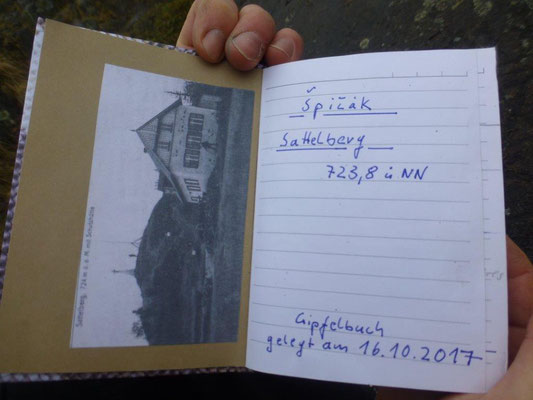 Sattelberg, 724 m ü. d. M. mit Schutzhütte
Špičák
Sattelberg
723,8 ü NN
Gipfelbuch
gelegt am 16.10.2017